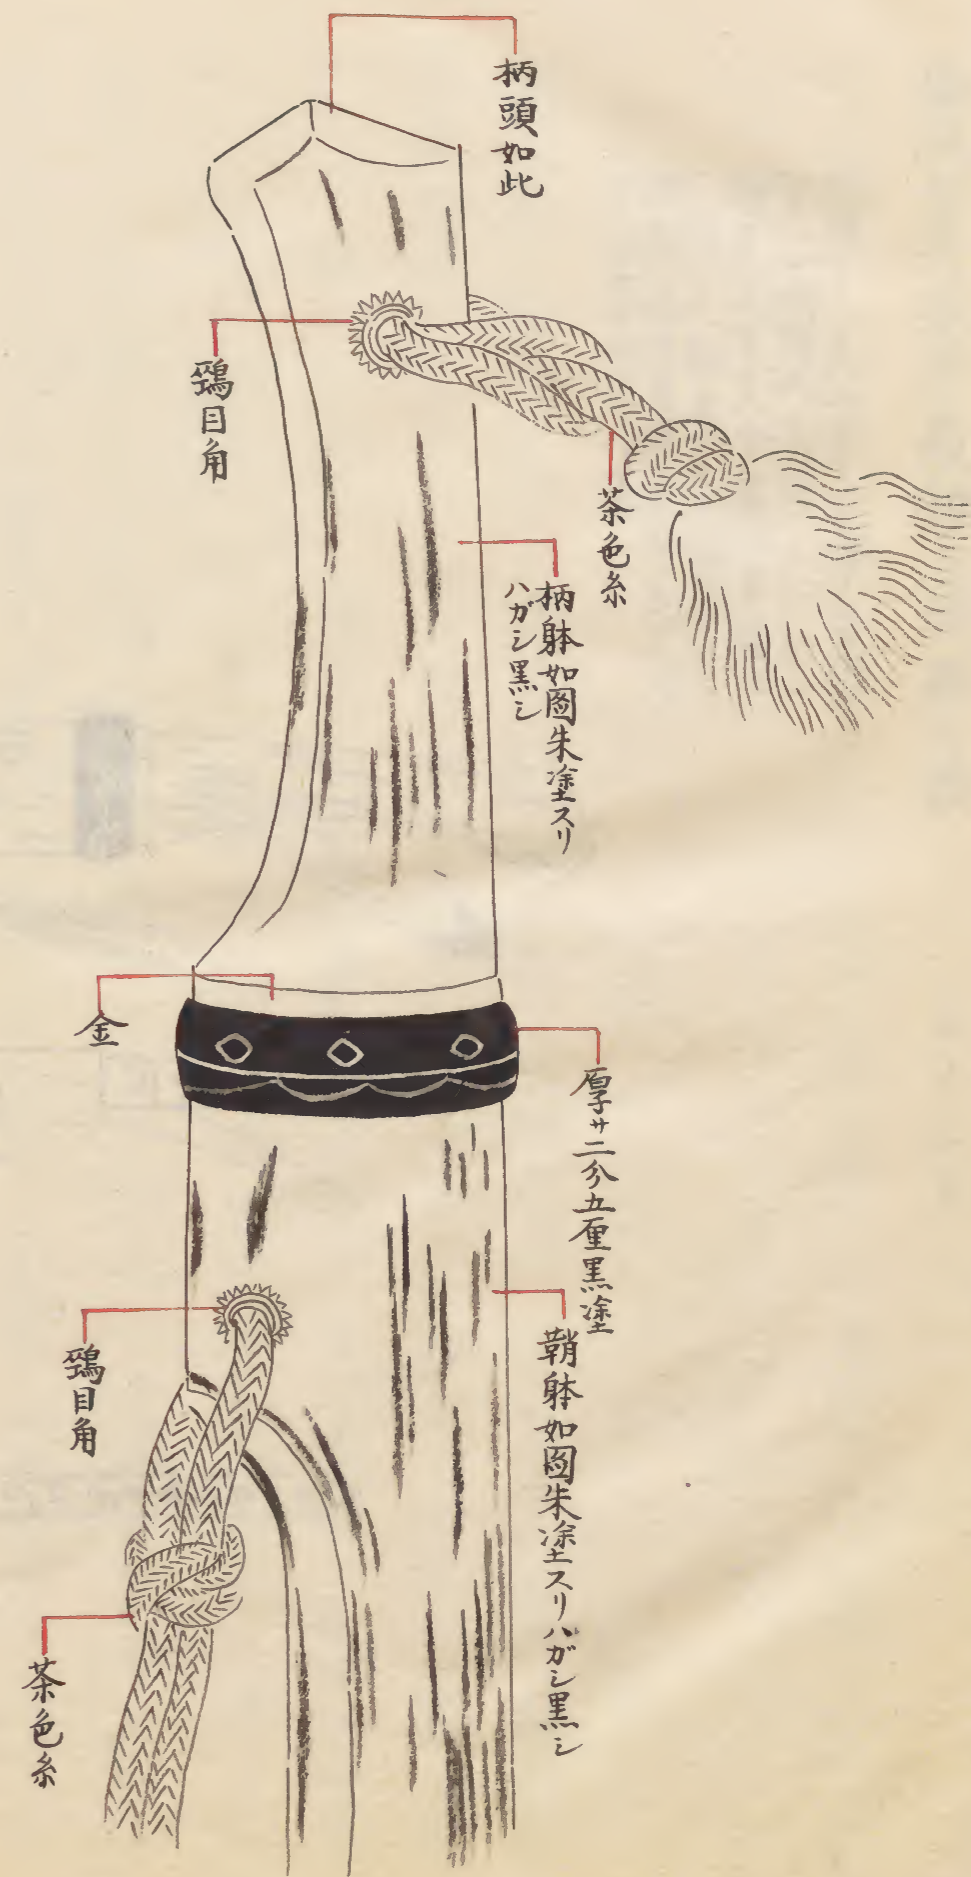 柄頭如此
鵄目角
茶色糸
柄躰如圖朱塗スリ
ハガシ黒シ
金
厚サ二分五厘黒塗
鵄目角
鞘躰如圖朱塗スリハガシ黒シ
茶色糸